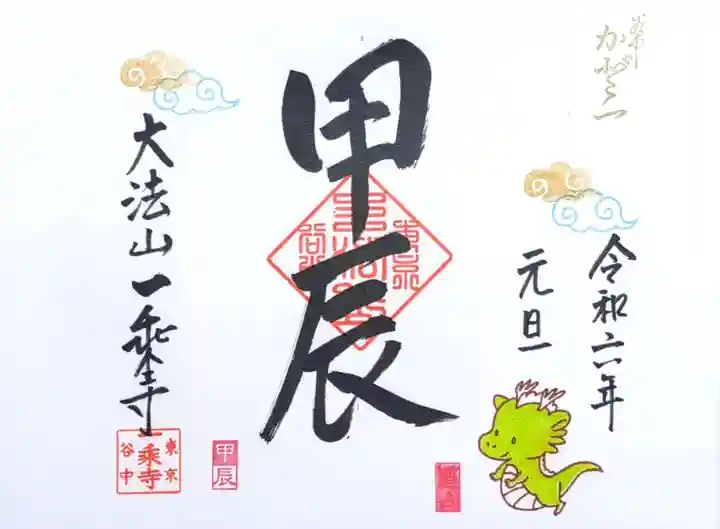 令和六年
元旦
甲辰
大法山一乗寺
東京
一乗寺
谷中
甲辰